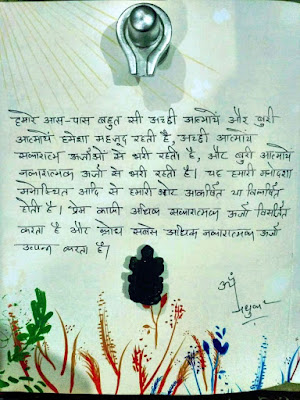 हमारे आस-पास बहुत सी अच्छी आत्मायें और बुरी
आत्मायें हमेशा महजूद रहती है, अच्छी आत्मायें
सकारात्मक ऊर्जाओं से भरी रहती है, और बुरी आत्मायें
नकारात्मक ऊर्जा से भरी रहती है। यह हमारी मनोदशा
मनःस्थिति आदि से हमारी ओर आकर्षित या विकर्षित
होती है। प्रेम काफी अधिक सकारात्मक ऊर्जा विसर्जित
करता है और क्रोध सबसे अधिक नकारात्मक ऊर्जा
उत्पन्न करता है।